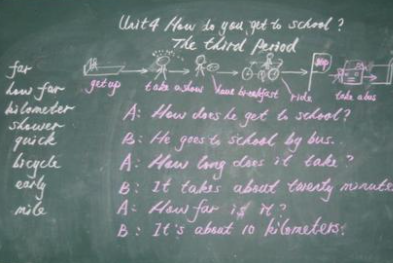 Unit 4 How do you get to school?
The third Period
far
how far
kilometer
shower
quick
bicycle
early
mile
get up
take a show
have breakfast
ride
stop
take a bus
A: How does he get to school?
B: He goes to school by bus.
A: How long does it take?
B: It takes about twenty minute
A: How far is it?
B: It's about 10 kilometers.